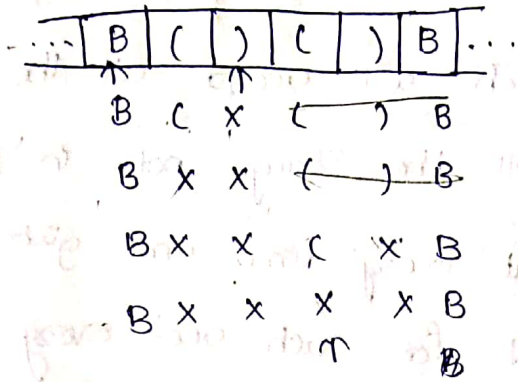 ... B ( ) ( ) B ...
B ( X ( ) B
B X X ( ) B
B X X ( X B
B X X X X B
B